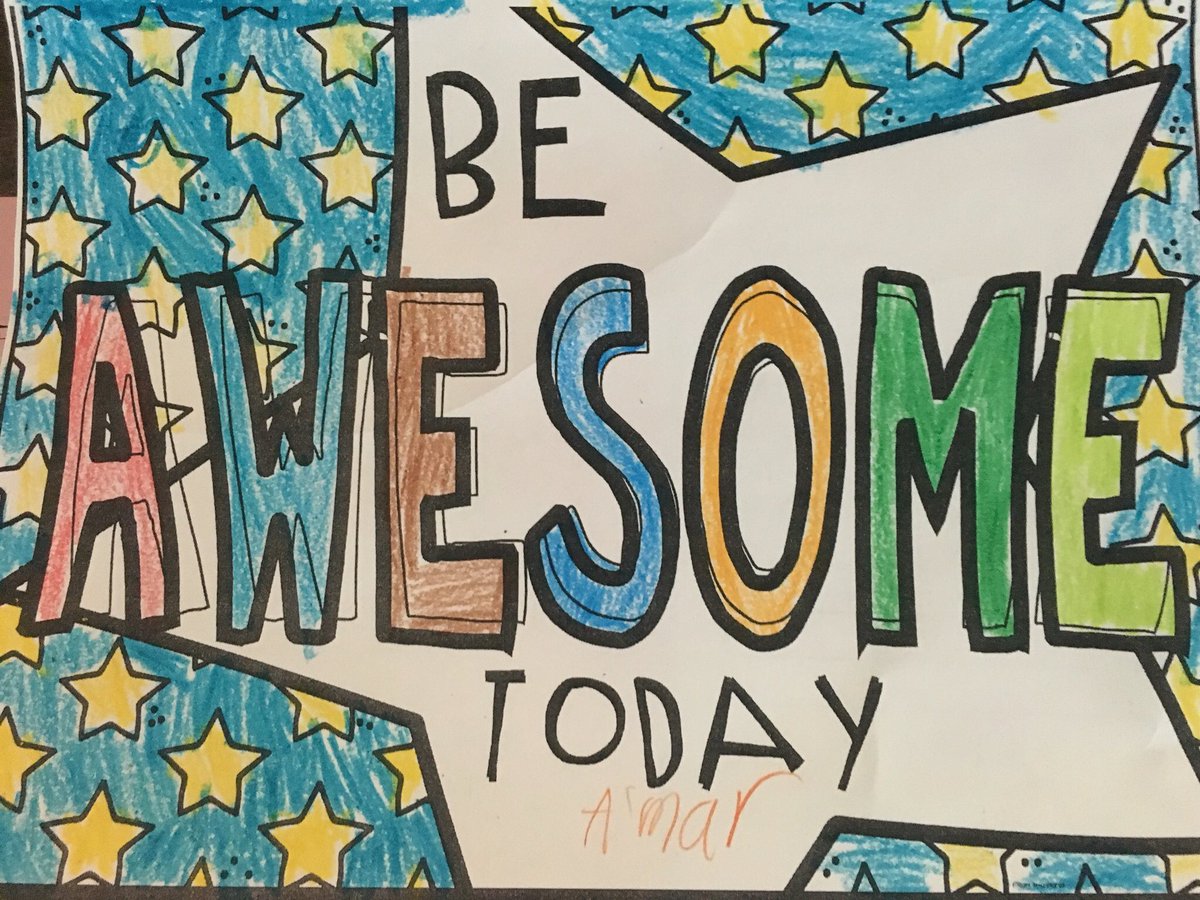 BE
AWESOME
TODAY
A'mar